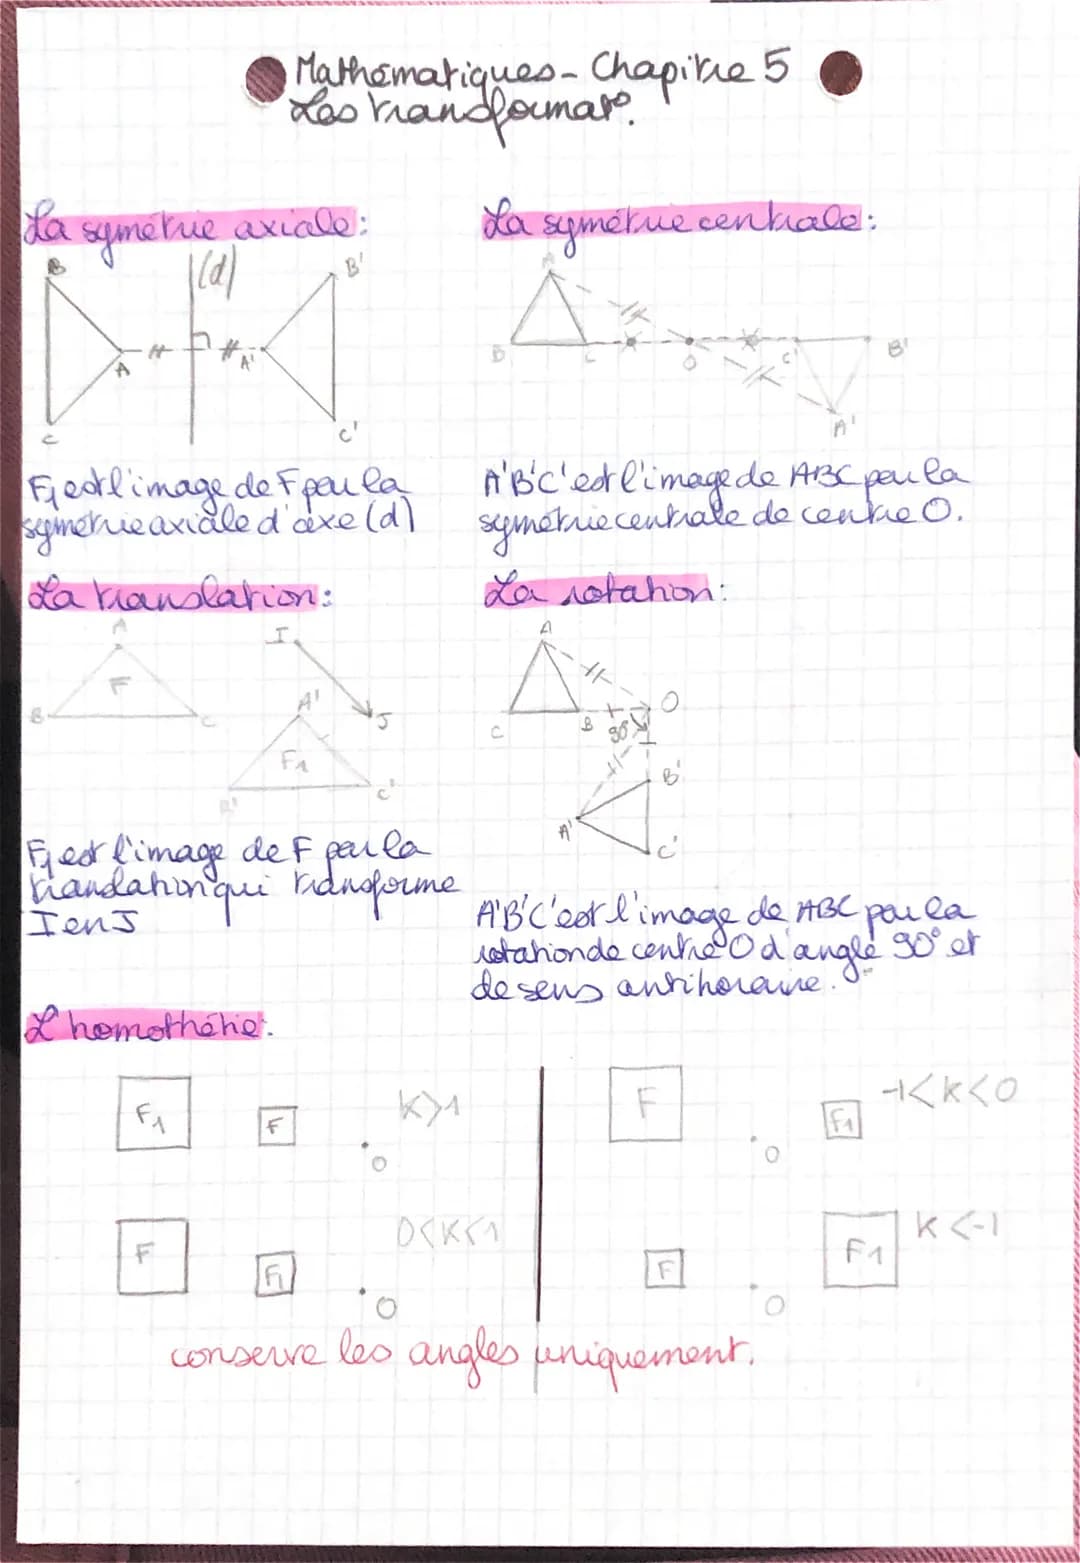 Mathématiques - Chapitre 5
Les transformat°.
La symétrie axiale:
B
(d)
B'
A
A'
C
C'
F1 est l'image de F par la
symétrie axiale d'axe (d)
La symétrie centrale:
A
B
C
O
C'
B'
A'
A'B'C' est l'image de ABC par la
symétrie centrale de centre O.
La translation:
A
I
F
A'
B
C
J
F1
B'
C'
F1 est l'image de F par la
translation qui transforme
I en J
La rotation:
A
O
C
B
90°
B'
A'
C'
A'B'C' est l'image de ABC par la
rotation de centre O d'angle 90° et
de sens antihoraire.
L'homothétie:
F1
F
O
k>1
F
O
F1
-1<k<0
F
F1
O
0<k<1
F
O
F1
k<-1
conserve les angles uniquement.